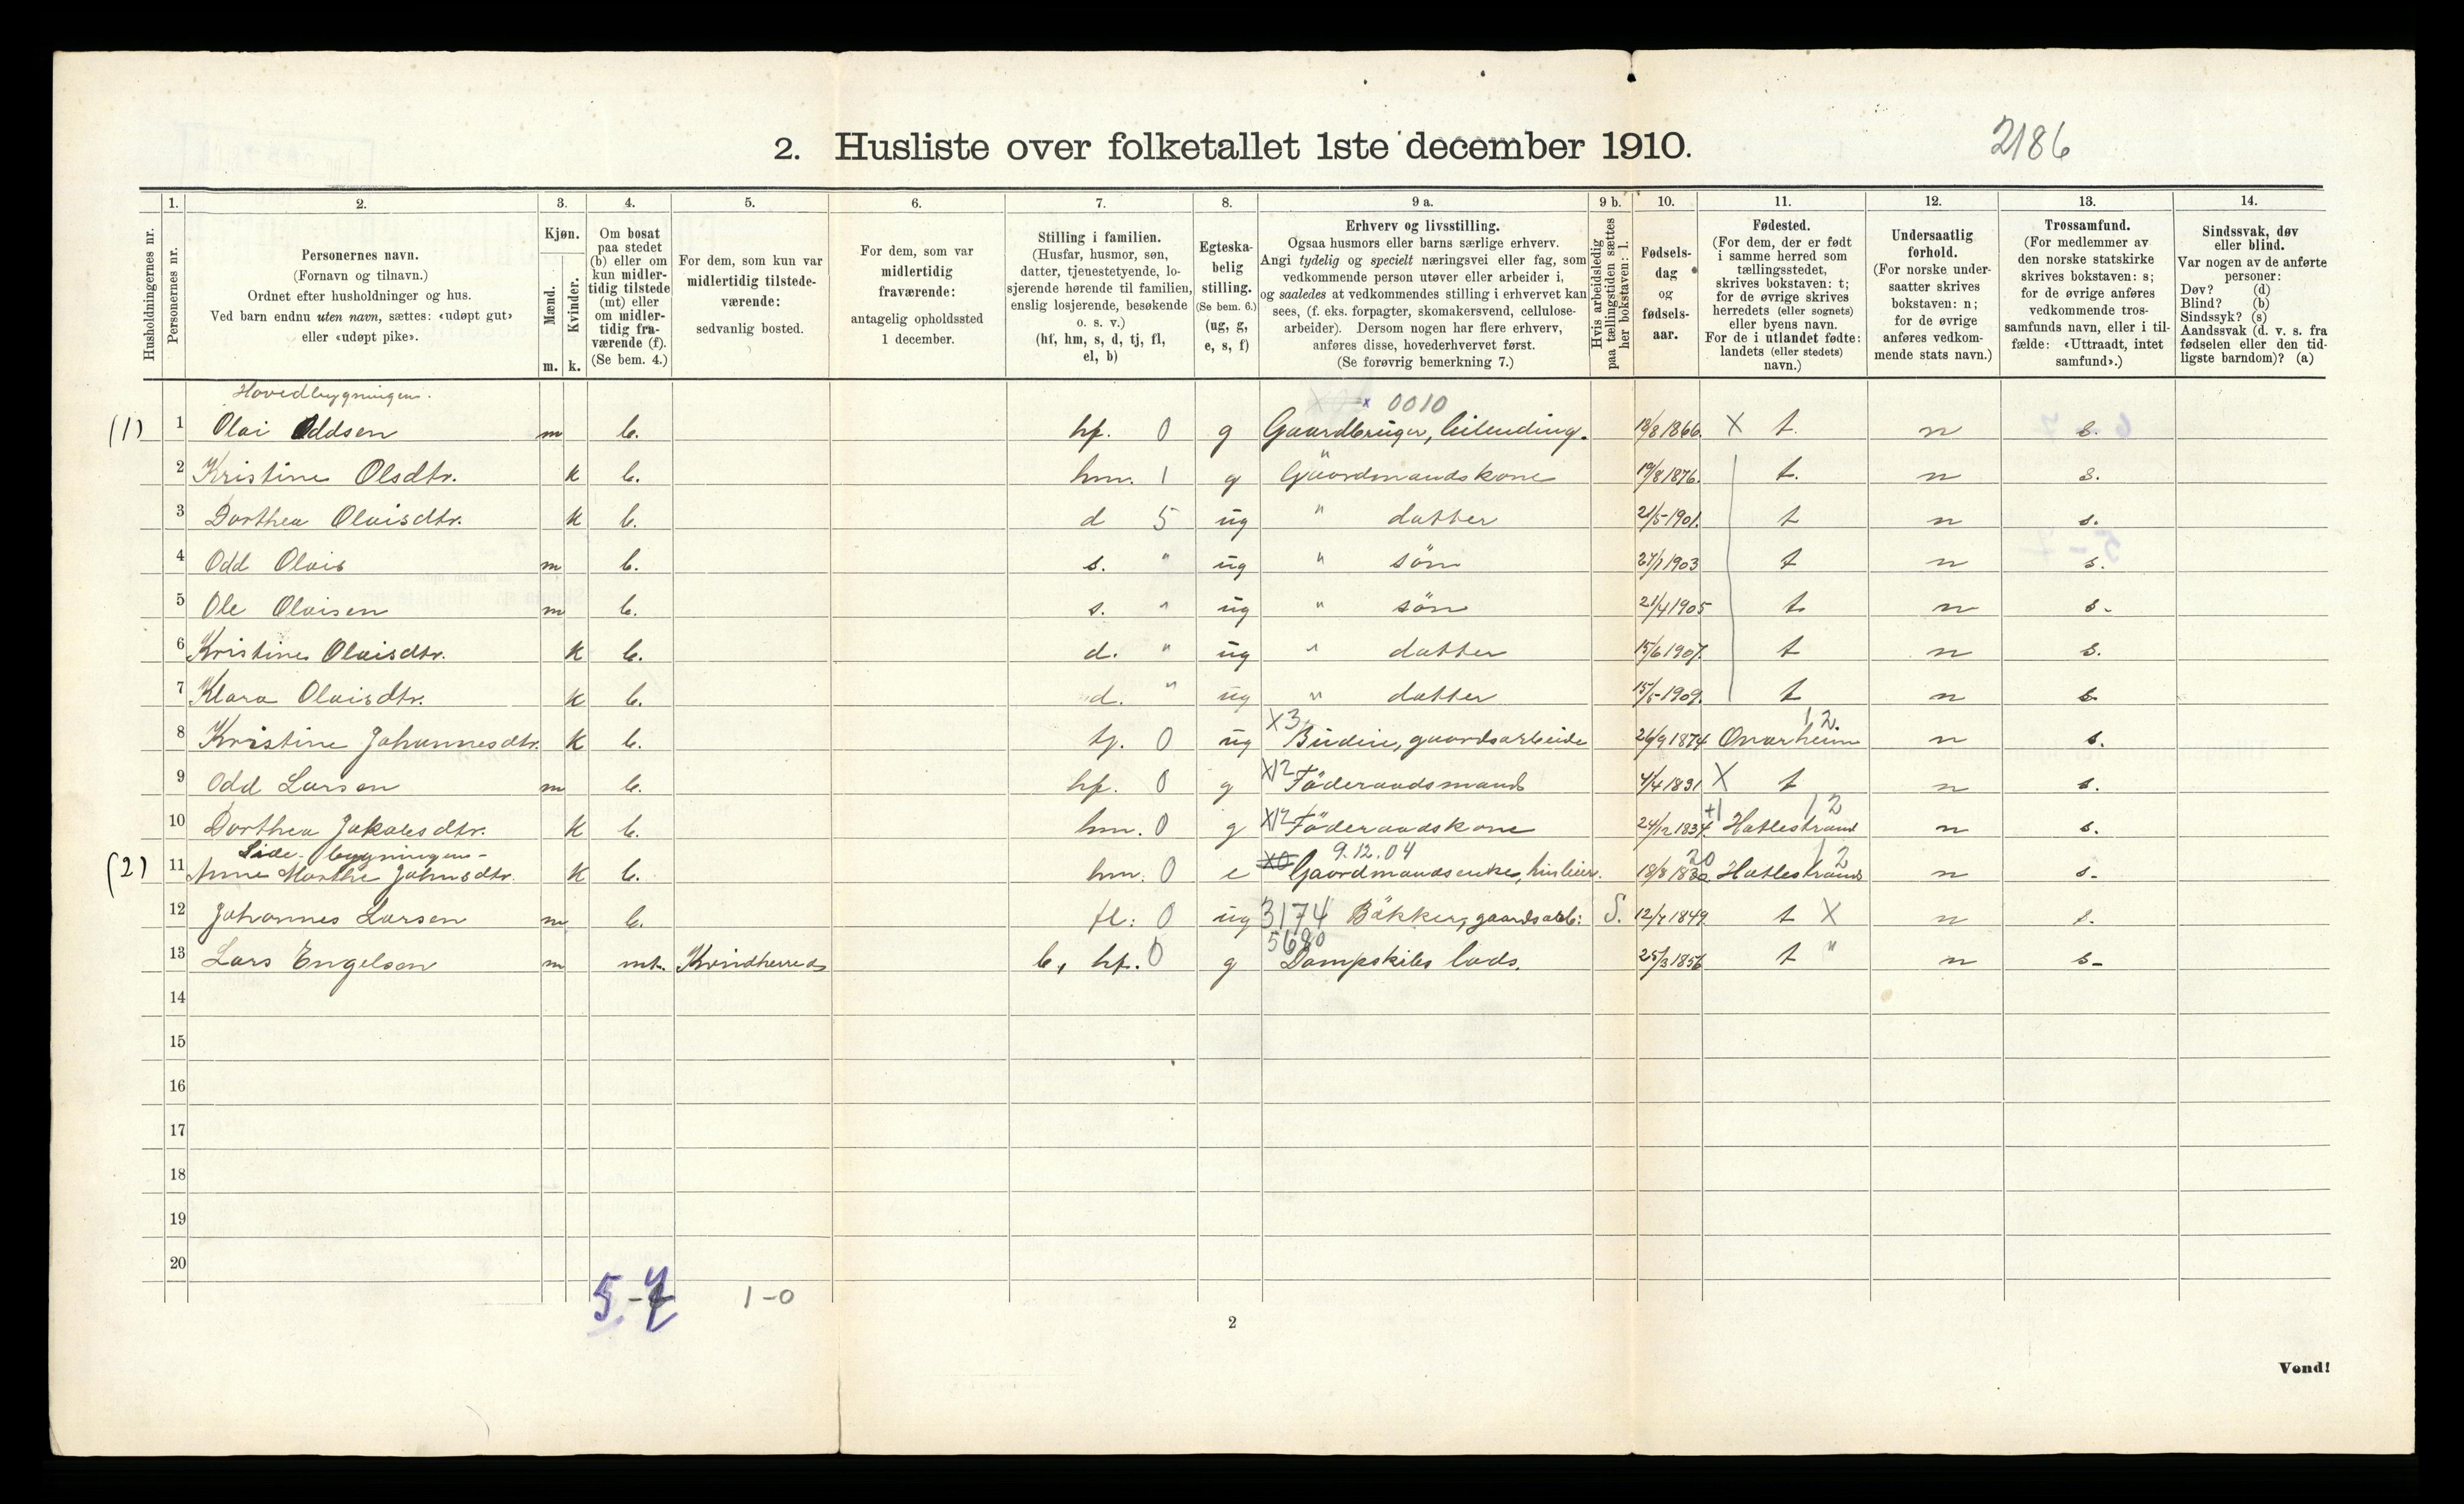 2. Husliste over folketallet 1ste december 1910.
2186
Husholdningernes nr.
1. Personernes nr.
2. Personernes navn.
(Fornavn og tilnavn.)
Ordnet efter husholdninger og hus.
Ved barn endnu uten navn, sættes: «udøpt gut»
eller «udøpt pike».
3. Kjøn.
Mænd. m.
Kvinder. k.
4. Om bosat
paa stedet
(b) eller om
kun midler-
tidig tilstede
(mt) eller
om midler-
tidig fra-
værende (f).
(Se bem. 4.)
5. For dem, som kun var
midlertidig tilstede-
værende:
sedvanlig bosted.
6. For dem, som var
midlertidig
fraværende:
antagelig opholdssted
1 december.
7. Stilling i familien.
(Husfar, husmor, søn,
datter, tjenestetyende, lo-
sjerende hørende til familien,
enslig losjerende, besøkende
o. s. v.)
(hf, hm, s, d, tj, fl,
el, b)
8. Egteska-
belig
stilling.
(Se bem. 6.)
(ug, g,
e, s, f)
9 a. Erhverv og livsstilling.
Ogsaa husmors eller barns særlige erhverv.
Angi tydelig og specielt næringsvei eller fag, som
vedkommende person utøver eller arbeider i,
og saaledes at vedkommendes stilling i erhvervet kan
sees, (f. eks. forpagter, skomakersvend, cellulose-
arbeider). Dersom nogen har flere erhverv,
anføres disse, hovederhvervet først.
(Se forøvrig bemerkning 7.)
9 b. Hvis arbeidsledig
paa tællingstiden sættes
her bokstaven: l.
10. Fødsels-
dag
og
fødsels-
aar.
11. Fødested.
(For dem, der er født
i samme herred som
tællingsstedet,
skrives bokstaven: t;
for de øvrige skrives
herredets (eller sognets)
eller byens navn.
For de i utlandet fødte:
landets (eller stedets)
navn.)
12. Undersaatlig
forhold.
(For norske under-
saatter skrives
bokstaven: n;
for de øvrige
anføres vedkom-
mende stats navn.)
13. Trossamfund.
(For medlemmer av
den norske statskirke
skrives bokstaven: s;
for de øvrige anføres
vedkommende tros-
samfunds navn, eller i til-
fælde: «Uttraadt, intet
samfund».)
14. Sindssvak, døv
eller blind.
Var nogen av de anførte
personer:
Døv? (d)
Blind? (b)
Sindssyk? (s)
Aandssvak (d. v. s. fra
fødselen eller den tid-
ligste barndom)? (a)
Hovedbygningen.
x 0010
(1) 1 Olai Oddsen m b. hf. 0 g Gaardbruger, leilending. 18/8 1866. X t. n s.
2 Kristine Olsdtr. k b. hm. 1 g Gaardmandskone 19/8 1876. t. n s.
3 Dorthea Olaisdtr. k b. d 5 ug " datter 21/5-1901. t n s.
4 Odd Olais m b. s. " ug " søn 27/1 1903 t n s.
5 Ole Olaisen m b. s. " ug " søn 21/4 1905 t n s.
6 Kristine Olaisdtr. k b. d. " ug " datter 15/6 1907. t n s.
7 Klara Olaisdtr. k b. d. " ug " datter 15/5-1909. t n s.
X3 12.
8 Kristine Johannesdtr. k b. tj. 0 ug Budeie, gaardsarbeide 26/9 1874 Onarheim n s.
9 Odd Larsen m b. hf. 0 g X12 Föderaadsmand 4/4 1831 X t n s.
+1 12
10 Dorthea Jakobsdtr. k b. hm. 0 g X12 Föderaadskone 24/12 1834. Hatlestrand n s.
Side-bygningen-
9.12.04 20 12
(2) 11 Anne Marthe Johnsdtr. k b. hm. 0 e X0 Gaardmandsenke, husleier. 18/8 Hatlestrand n s.
12 Johannes Larsen m b. fl: 0 ug 3174 Bäkker, gaardsarb: S. 12/7 1849 t X n s.
5680
13 Lars Engelsen m mt. Kvindherred b, hf. 0 g Dampskibs lods. 25/3 1856 t " n s-
14
15
16
17
18
19
20
5-7 1-0
2
Vend!